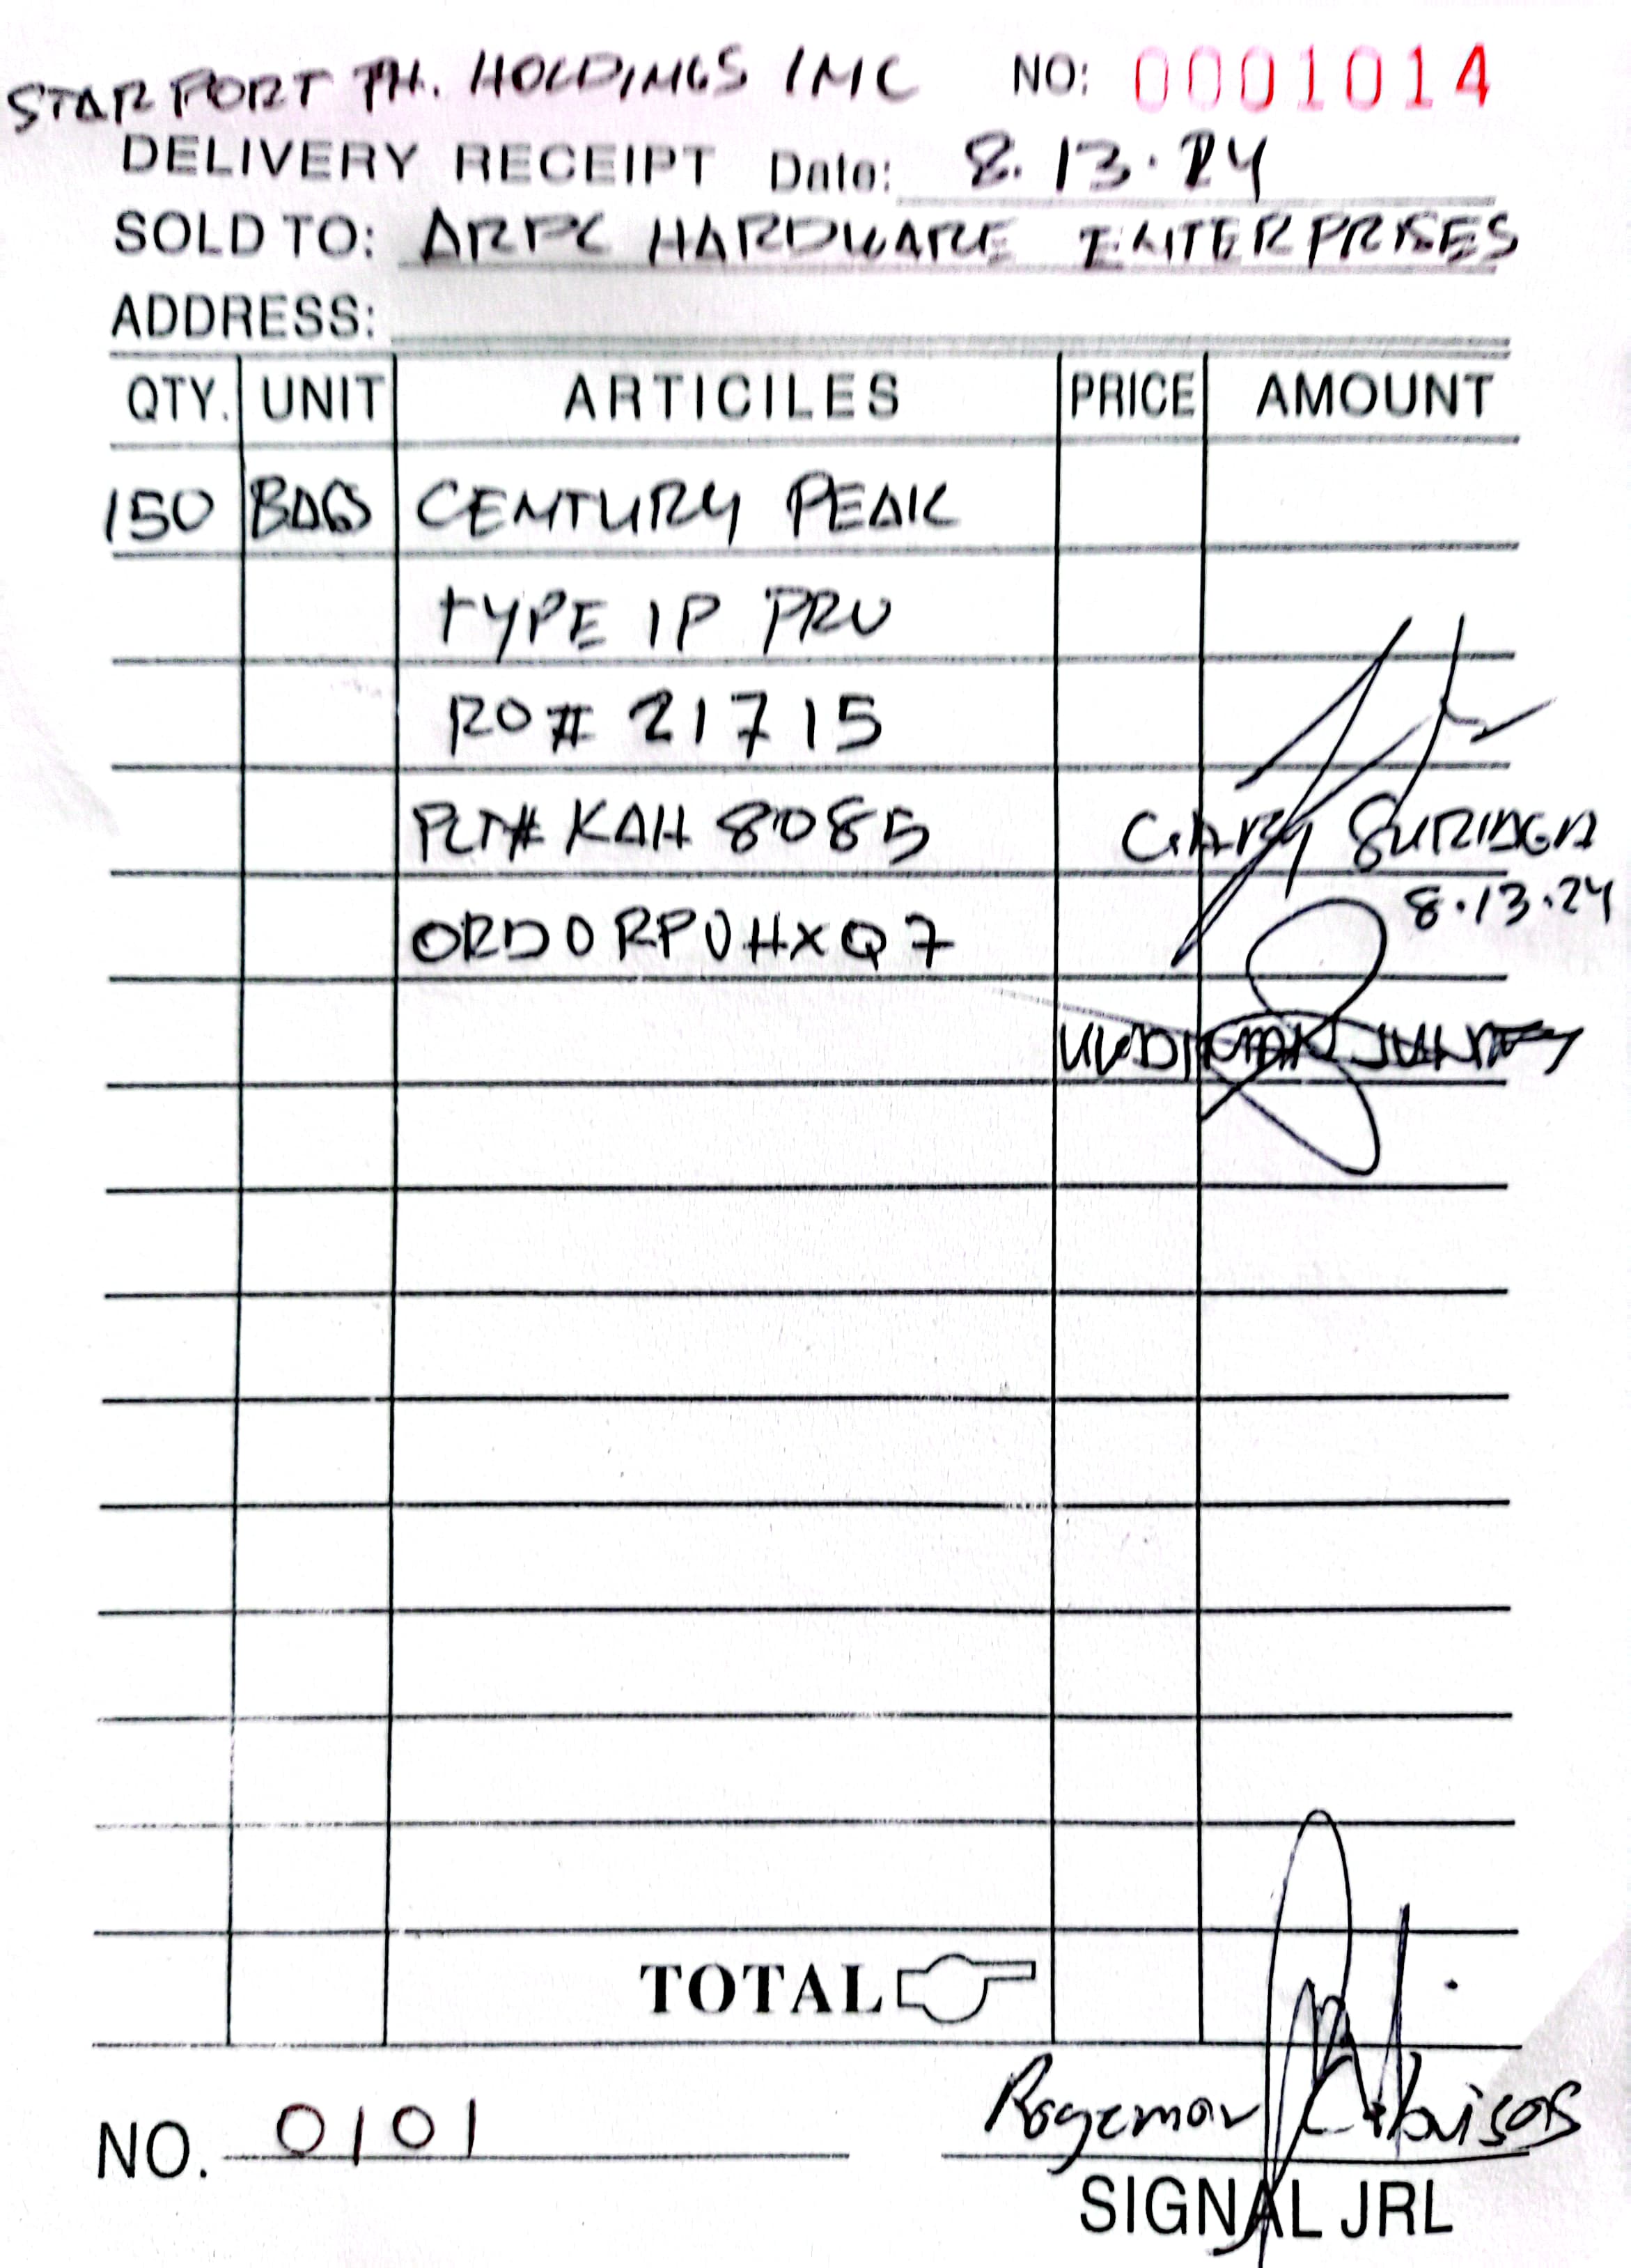 STARPORT PH. HOLDINGS INC NO: 0001014
DELIVERY RECEIPT Date: 8.13.24
SOLD TO: ARPC HARDWARE ENTERPRISES
ADDRESS:
QTY. UNIT ARTICILES PRICE AMOUNT
150 BAGS CENTURY PEAK
TYPE 1P PRO
RO# 21715
PLT# KAH 8085 GARY SURIAGA
8.13.24
ORD0RPUHXQ7
TOTAL
NO. 0101 Rogemar
SIGNAL JRL